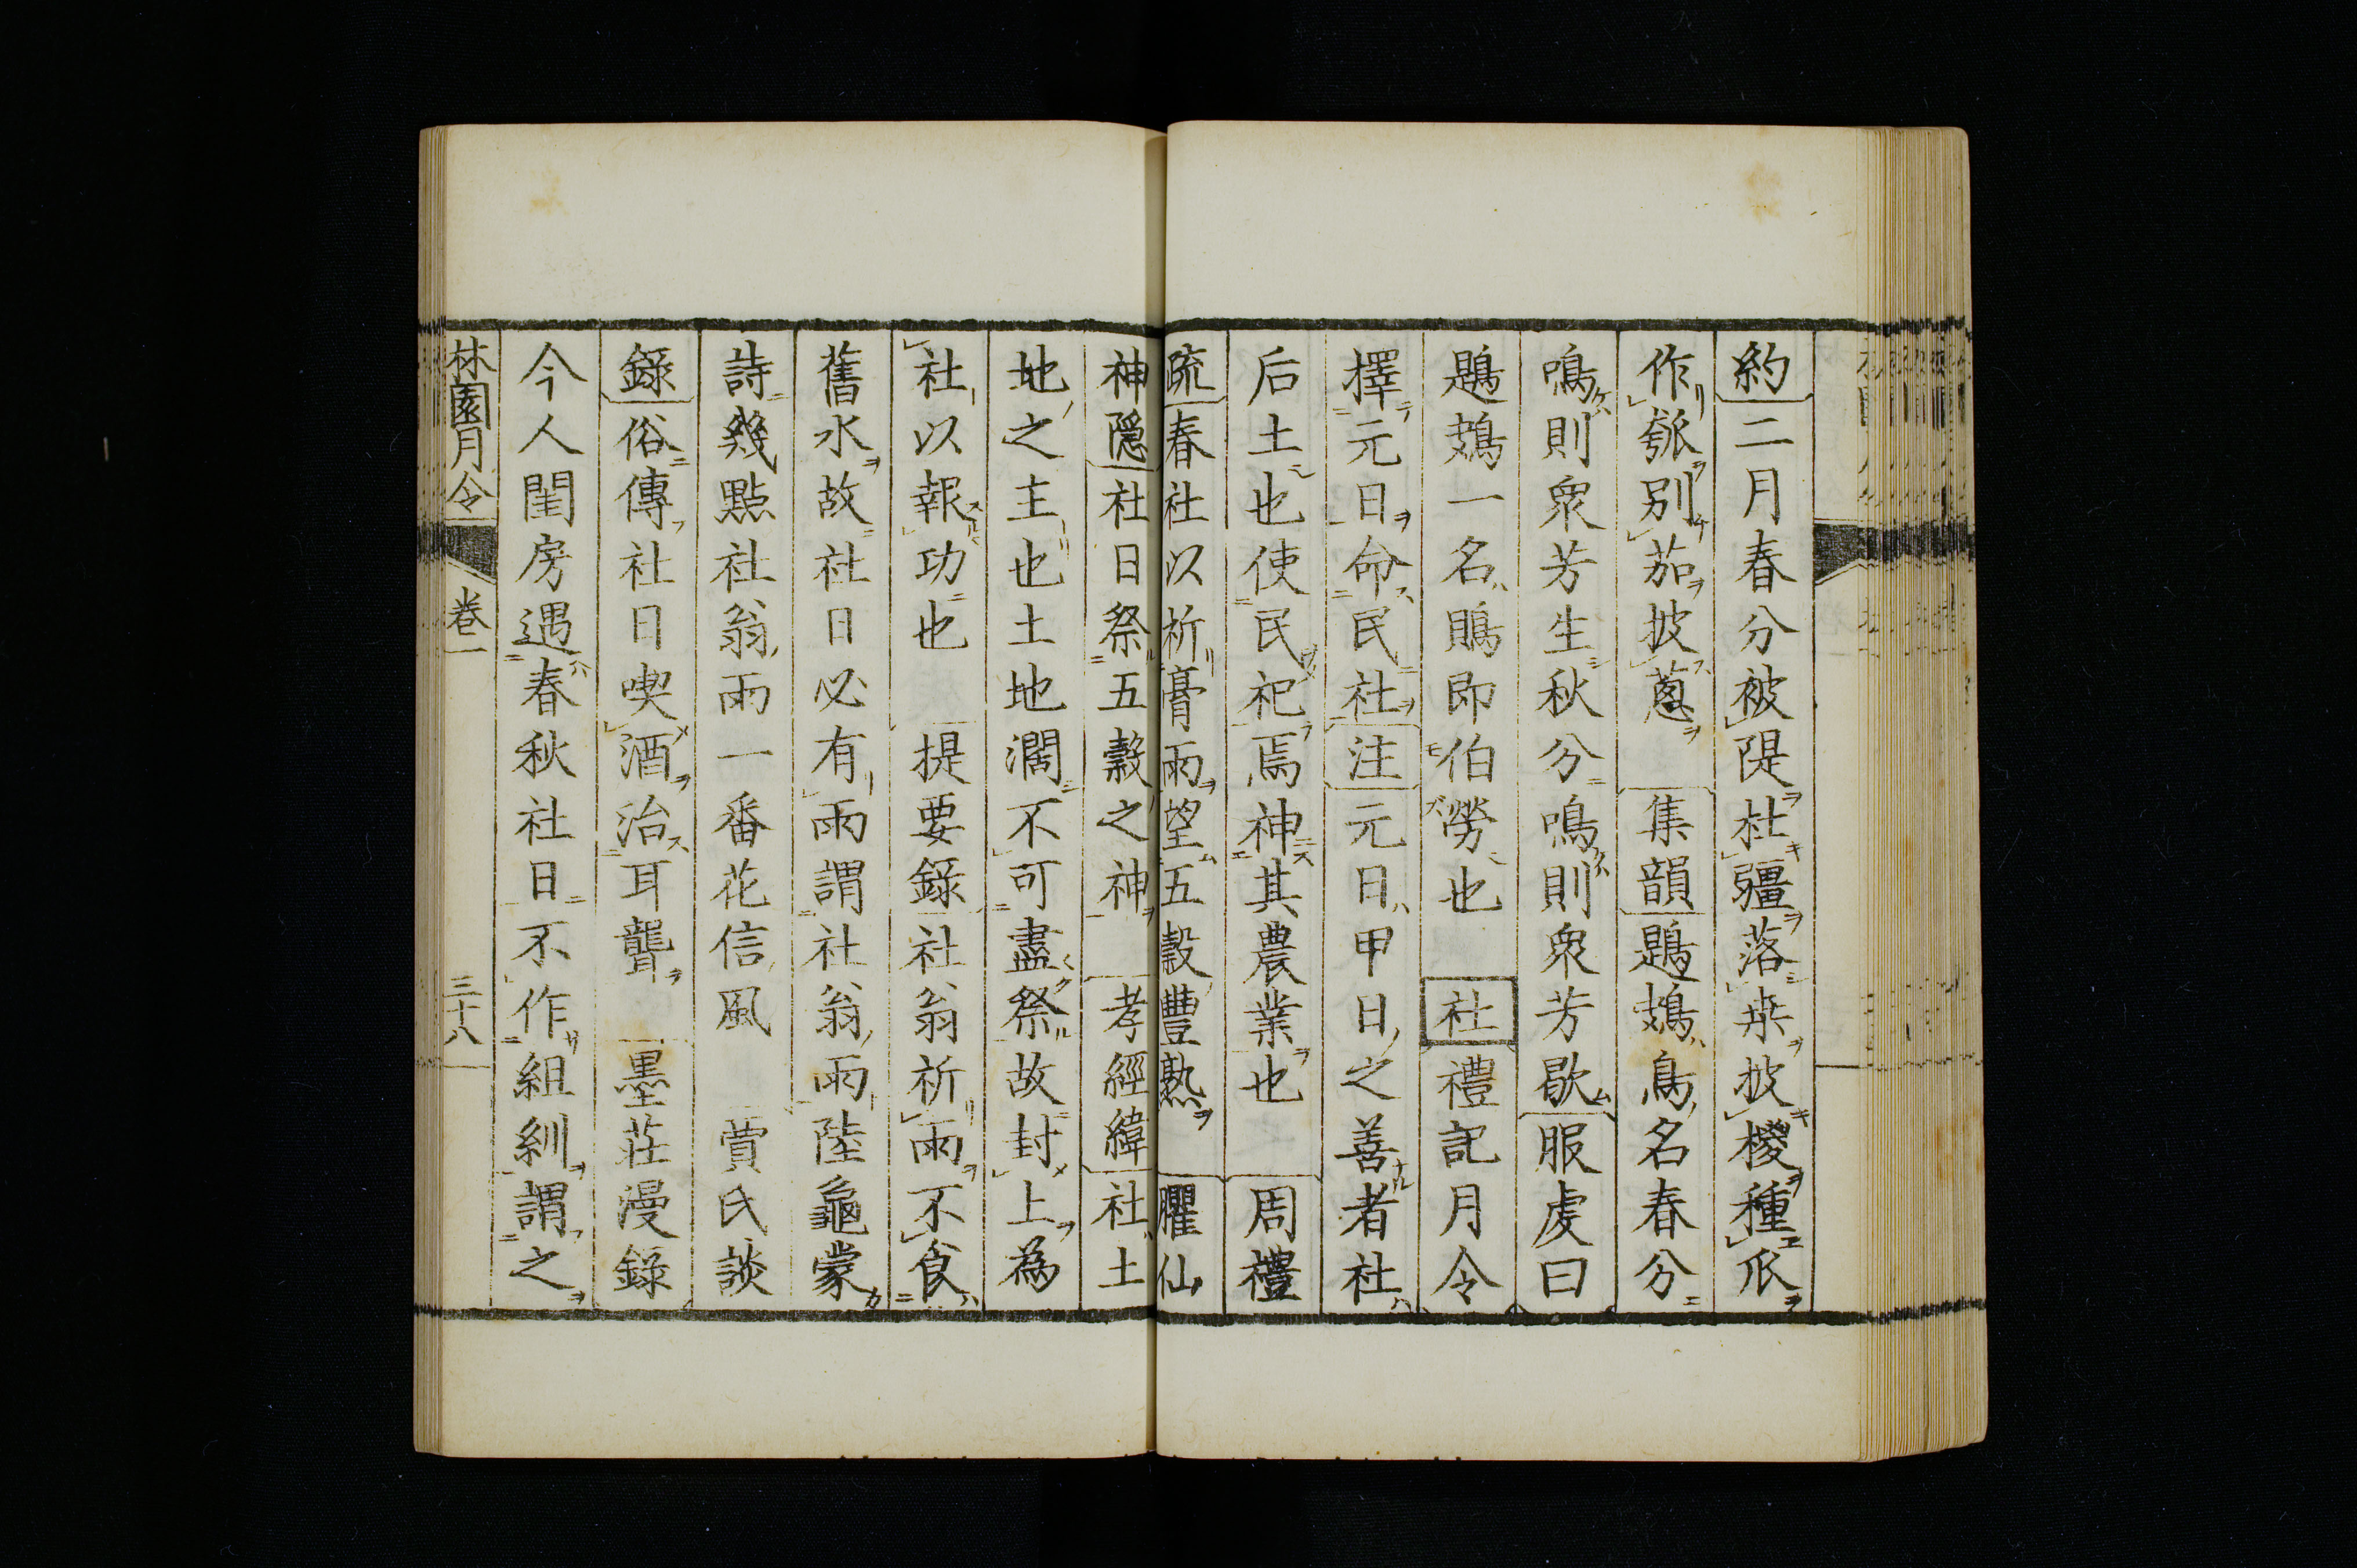 約二月春分被隄杜疆落桒披椶種瓜
作瓠別茄披蔥　集韻鶗鴂鳥名春分
鳴則衆芳生秋分鳴則衆芳歇服虔曰
鶗鴂一名鵙即伯勞也　社禮記月令
擇元日命民社注元日甲日之善者社
后土也使民祀焉神其農業也　周禮
疏春社以祈膏雨望五穀豐熟　臞仙
神隱社日祭五穀之神　孝經緯社土
地之主也土地濶不可盡祭故封土為
社以報功也　提要錄社翁祈雨不食
舊水故社日必有雨謂社翁雨陸龜蒙
詩幾點社翁雨一番花信風　賈氏談
錄俗傳社日喫酒治耳聾　墨莊漫錄
今人閨房遇春秋社日不作組紃謂之
林園月令　卷一　三十八